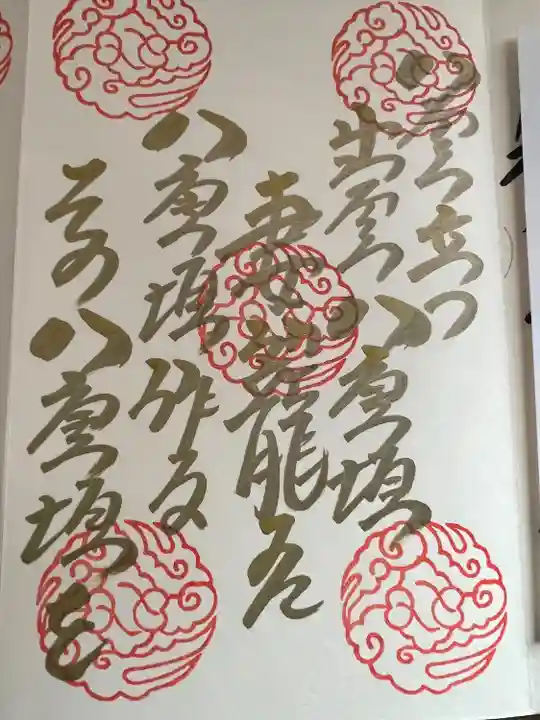 八雲立つ
出雲八重垣
妻籠尓
八重垣作る
その八重垣を